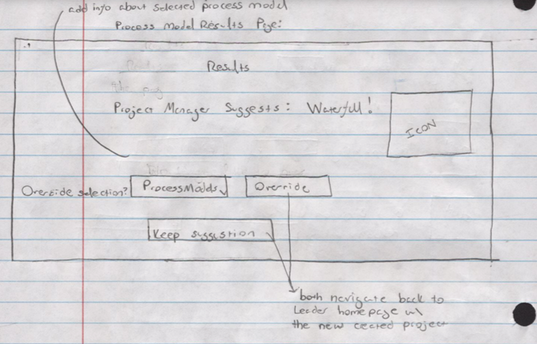 add info about selected process model
Process Model Results Page:
Results
Project Manager Suggests: Waterfall!
ICON
Override selection?
Process Models
Override
Keep suggestion
both navigate back to
Leader homepage w/
the new project